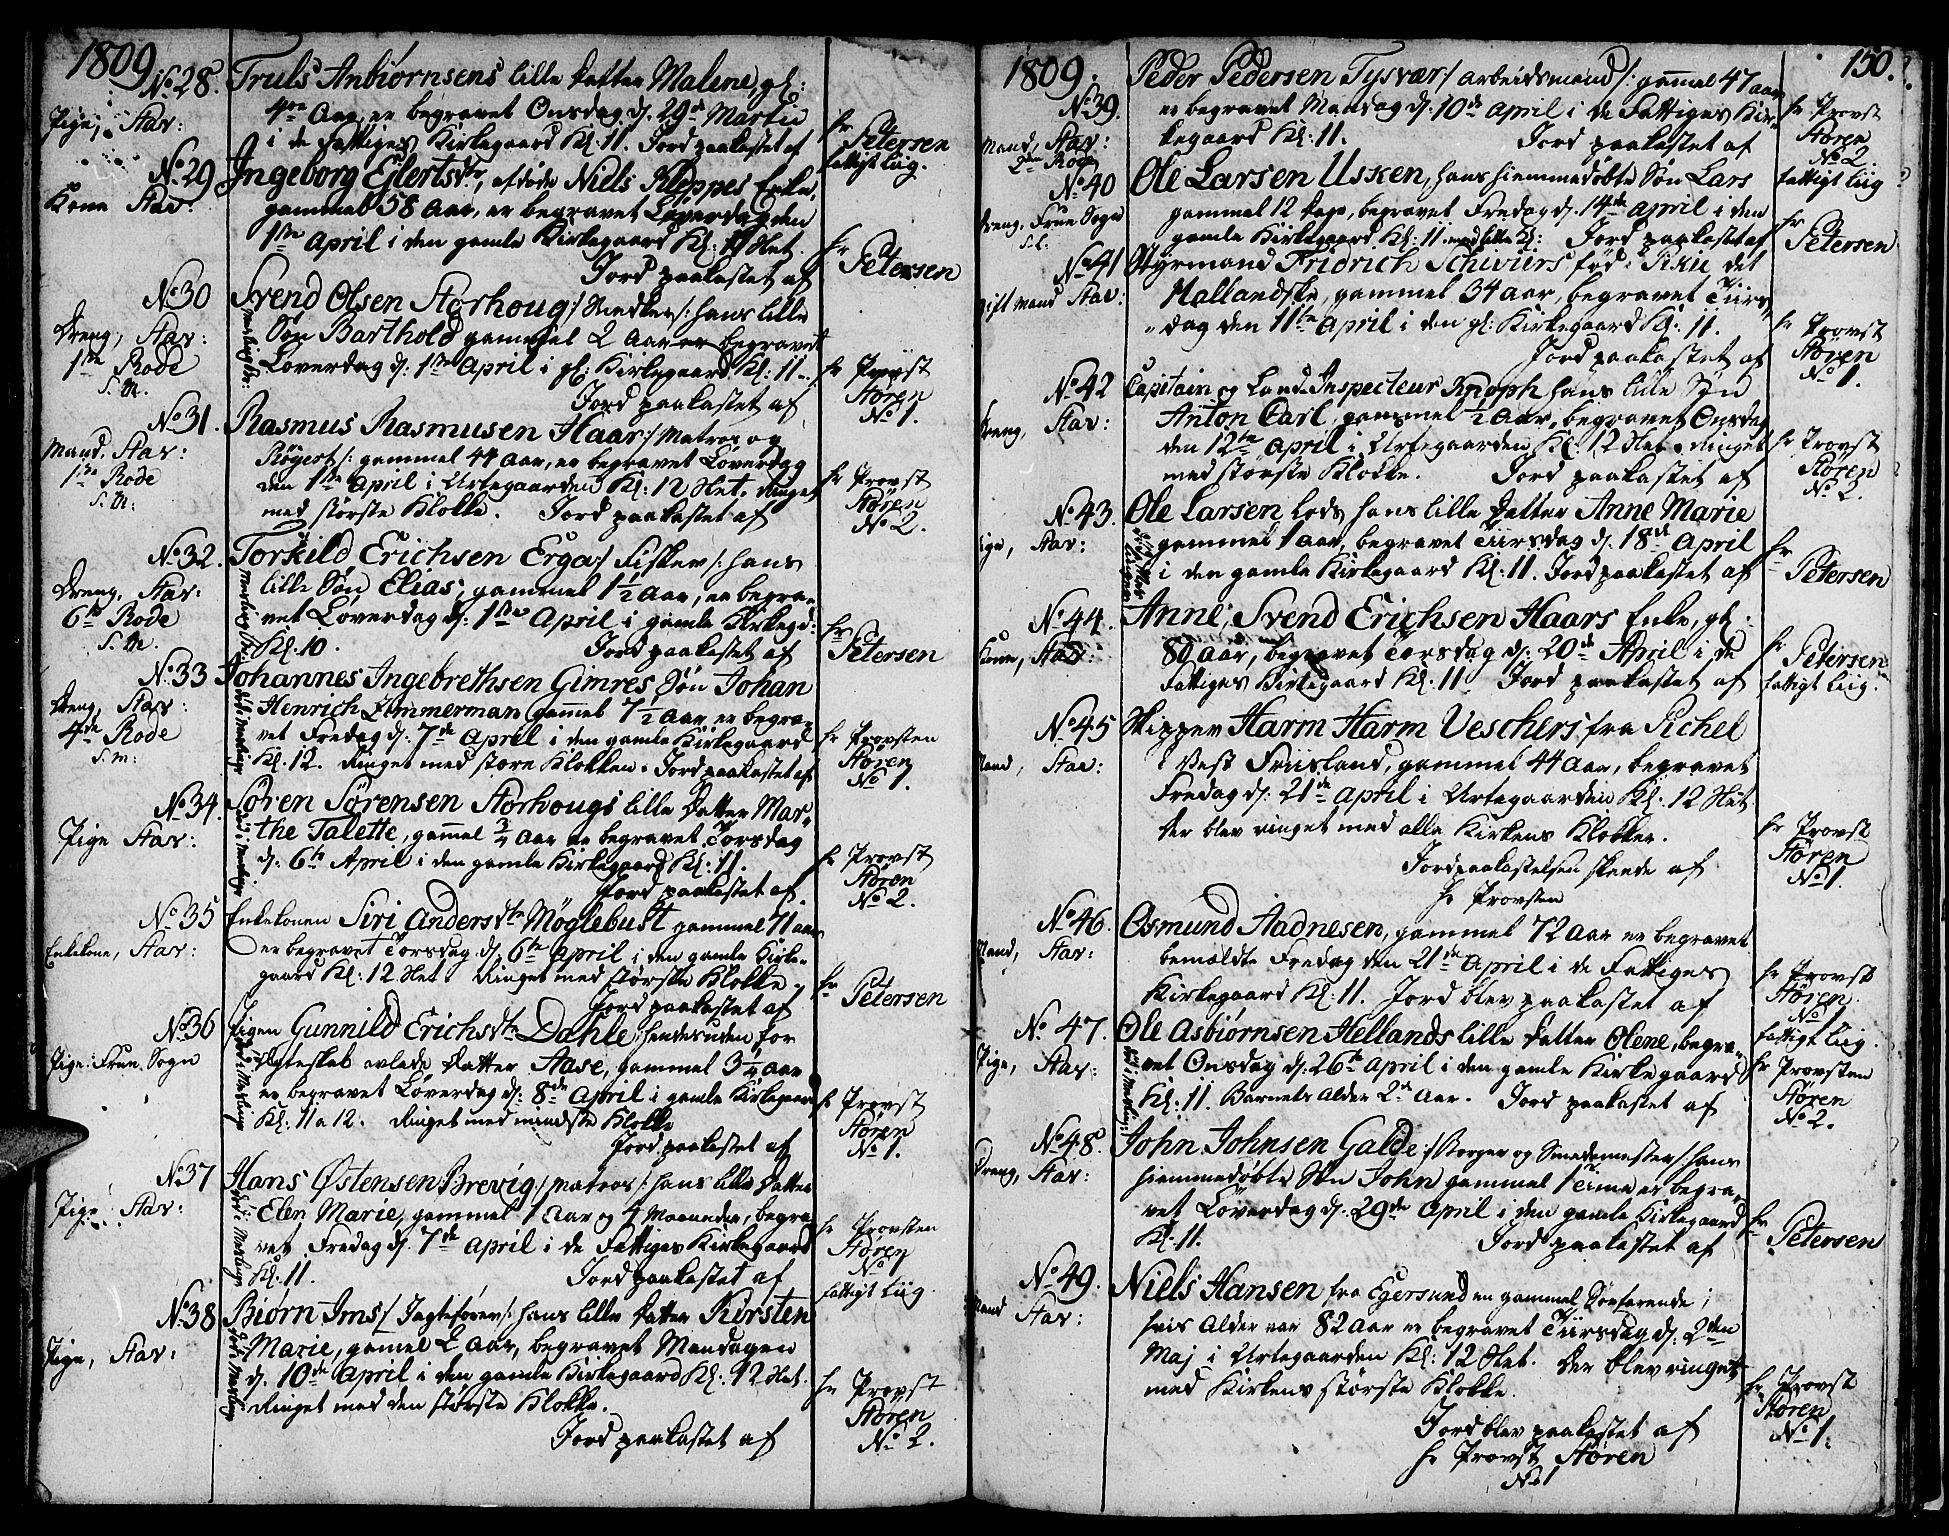 1809
No. 28. Truls Anbiørnsens lille datter Malene, gl:
Pige, Stav: 4re Aar, er begravet Onsdag d. 29d Martii
i de Fattiges Kirkegaard Kl. 11. Jord paakastet af Hr Petersen
fattigt Liig.
No. 29 Ingeborg Ejlertsdtr, afdøde Niels Kleppes Enke,
Kone Stav: gammel 58 Aar, er begravet Løverdag den
1ste April i den gamle Kirkegaard Kl. 11 Slet.
Jord paakastet af Hr Petersen
No. 30 Svend Olsen Storhoug /: Snedker :/ hans lille
Dreng, Stav: Søn Barthold gammel 2 Aar er begravet
1ste Rode Løverdag d. 1ste April i gl: Kirkegaard Kl: 11
S. M. Jord paakastet af Hr Provst
Støren
No 1.
No. 31. Rasmus Rasmusen Haar /: Matros og
Mand, Stav: gammel 44 Aar, er begravet Løverdag
1ste Rode den 1ste April i Urtegaarden Kl: 12 Slet. Ringet
S. M: med største Klokke. Jord paakastet af Hr Provst
Støren
No 2.
No. 32. Torkild Erichsen Erga /: Fisker :/ hans
Dreng, Stav: lille Søn Elias, gammel 1½ Aar, er begra-
6te Rode vet Løverdag d. 1ste April i gamle Kirkegd:
S. M. Kl. 10. Jord paakastet af Hr Petersen
No. 33 Johannes Ingebrethsen Gimres Søn Johan
Dreng, Stav: Henrich Zimmerman gammel 7½ Aar er begra-
4de Rode vet Fredag d. 7de April i den gamle Kirkegaard
S. M: Kl. 12. Ringet med store Klokken. Jord paakastet af Hr Provsten
Støren
No 1.
No. 34. Søren Sørensen Storhougs lille Datter Mar-
Pige Stav: the Talette, gammel ¾ Aar er begravet Torsdag
d. 6te April i den gamle Kirkegaard Kl: 11.
Jord paakastet af Hr Provst
Støren
No 2.
No. 35 Enkekonen Siri Andersdtr Møglebust gammel 71 Aar
Enkekone, Stav: er begravet Torsdag d. 6te April i den gamle Kirke-
gaard Kl: 12 Slet Ringet med største Klokke
Jord paakastet af Hr Petersen
No. 36 Pigen Gunnild Erichsdtr Dahle, hendes uden for
Pige: Frue Sogn Ægteskab avlede Datter Aase, gammel 3¼ Aar
er begravet Løverdag d. 8de April i gamle Kirkegaard
Kl: 11 a 12. Ringet med mindste Klokke
Jord paakastet af Hr Provst
Støren
No 1.
No. 37 Hans Østensen Brevig /: Matros :/ hans lille Datter
Pige Stav: Elen Marie, gammel 1 Aar og 4 Maaneder, begra-
vet Fredag d. 7de April i de Fattiges Kirkegaard
Kl: 11. Jord paakastet af Hr Provsten
Støren
No 1
fattigt Liig.
No. 38 Biørn Ims /: Jagtefører :/ hans lille Datter Kirsten
Pige, Stav: Marie, gamel 2 Aar, begravet Mandagen
d. 10de April i den gamle Kirkegaard Kl: 12 Slet.
Ringet med den største Klokke.
Jord paakastet af Hr Provst
Støren
No. 2.
1809. 150.
No. 39 Peder Pedersen Tysvær /: arbeidsmand :/ gammel 47 aar
Mand, Stav: er begravet Mandag d. 10de April i de Fattiges Kir-
2den Rode kegaard Kl: 11. Jord paakastet af Hr Provst
Støren
No 2.
fattigt Liig
No. 40 Ole Larsen Ussken, hans hiemmedøbte Søn Lars
Dreng, Frue Sogn gammel 12 dage, begravet Fredag d. 14de April i den
gamle Kirkegaard Kl: 11 med lille Kl: Jord paakastet af Hr Petersen
No. 41 Styrmand Fridrich Schivürs fød i det
gift Mand Stav: Hallandske, gammel 34 aar, begravet Tiirs-
dag den 11te April i den gl: Kirkegaard Kl: 11.
Jord paakastet af Hr Provst
Støren
No 1.
No. 42 Capitain og Land Inspecteur Knoph hans lille Søn
Dreng, Stav: Anton Carl, gammel ½ Aar, begravet Onsdag
den 12te April i Urtegaarden Kl: 12 Slet. Ringet
med største Klokke. Jord paakastet af Hr Provst
Støren
No 2.
No. 43. Ole Larsen Lods hans lille datter Anne Marie
Pige, Stav: gammel 1 aar, begravet Tiirsdag d. 18de April
i den gamle Kirkegaard Kl: 11. Jord paakastet af Hr Petersen
No. 44. Anne, Svend Erichsen Haars Enke, gl:
Kone, Stav: 80 aar, begravet Torsdag d: 20de April i de
Fattiges Kirkegaard Kl: 11 Jord paakastet af Hr Petersen
fattigt Liig.
No. 45 Skipper Harm Harm Veschers fra Pichel
Mand, Stav: i Vest Friisland, gammel 44 Aar, begravet
Fredag d. 21de April i Urtegaarden Kl: 12 Slet
der blev ringet med alle Kirkens Klokker.
Jordpaakastelsen skeede af Hr Provst
Støren
No 1.
Hr Provsten
No. 46. Osmund Aadnesen, gammel 72 Aar er begravet
Mand, Stav: bemældte Fredag den 21de April i de Fattiges
Kirkegaard Kl: 11. Jord blev paakastet af Hr Provst
Støren
No 1
fattigt Liig.
No. 47. Ole Asbiørnsen Hellands lille datter Olene, begra-
Pige, Stav: vet Onsdag d. 26te April i den gamle Kirkegaard
Kl: 11. Barnets Alder 2de Aar. Jord paakastet af Hr Provsten
Støren
No 2.
No. 48. John Johnsen Galde /: Borger og Smedemester :/ hans
Dreng, Stav: hiemmedøbte Søn John gammel 1 Time er begra-
vet Løverdag d. 29de April i den gamle Kirkegaard
Kl: 11. Jord paakastet af Hr Petersen
No. 49. Niels Hansen fra Egersund en gammel Søefarende,
Mand Stav: hvis Alder var 82 Aar er begravet Tiirsdag d. 2den
Maj i Urtegaarden Kl: 12 Slet. Der blev ringet
med Kirkens største Klokke. Hr Provst
Støren
No 1.
Jord blev paakastet af
Hr Provst Støren
No 1